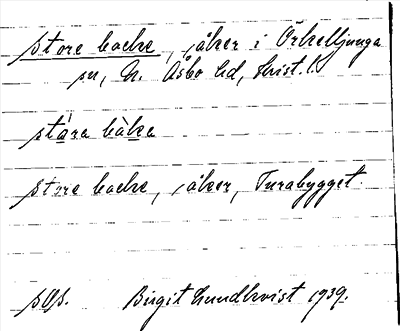 Store backe, åker i Örkelljunga
sn, N. Åsbo hd, Krist. l.
stára bàke
Store backe, åker, Turabygget.
sOs. Birgit Lundkvist 1939.